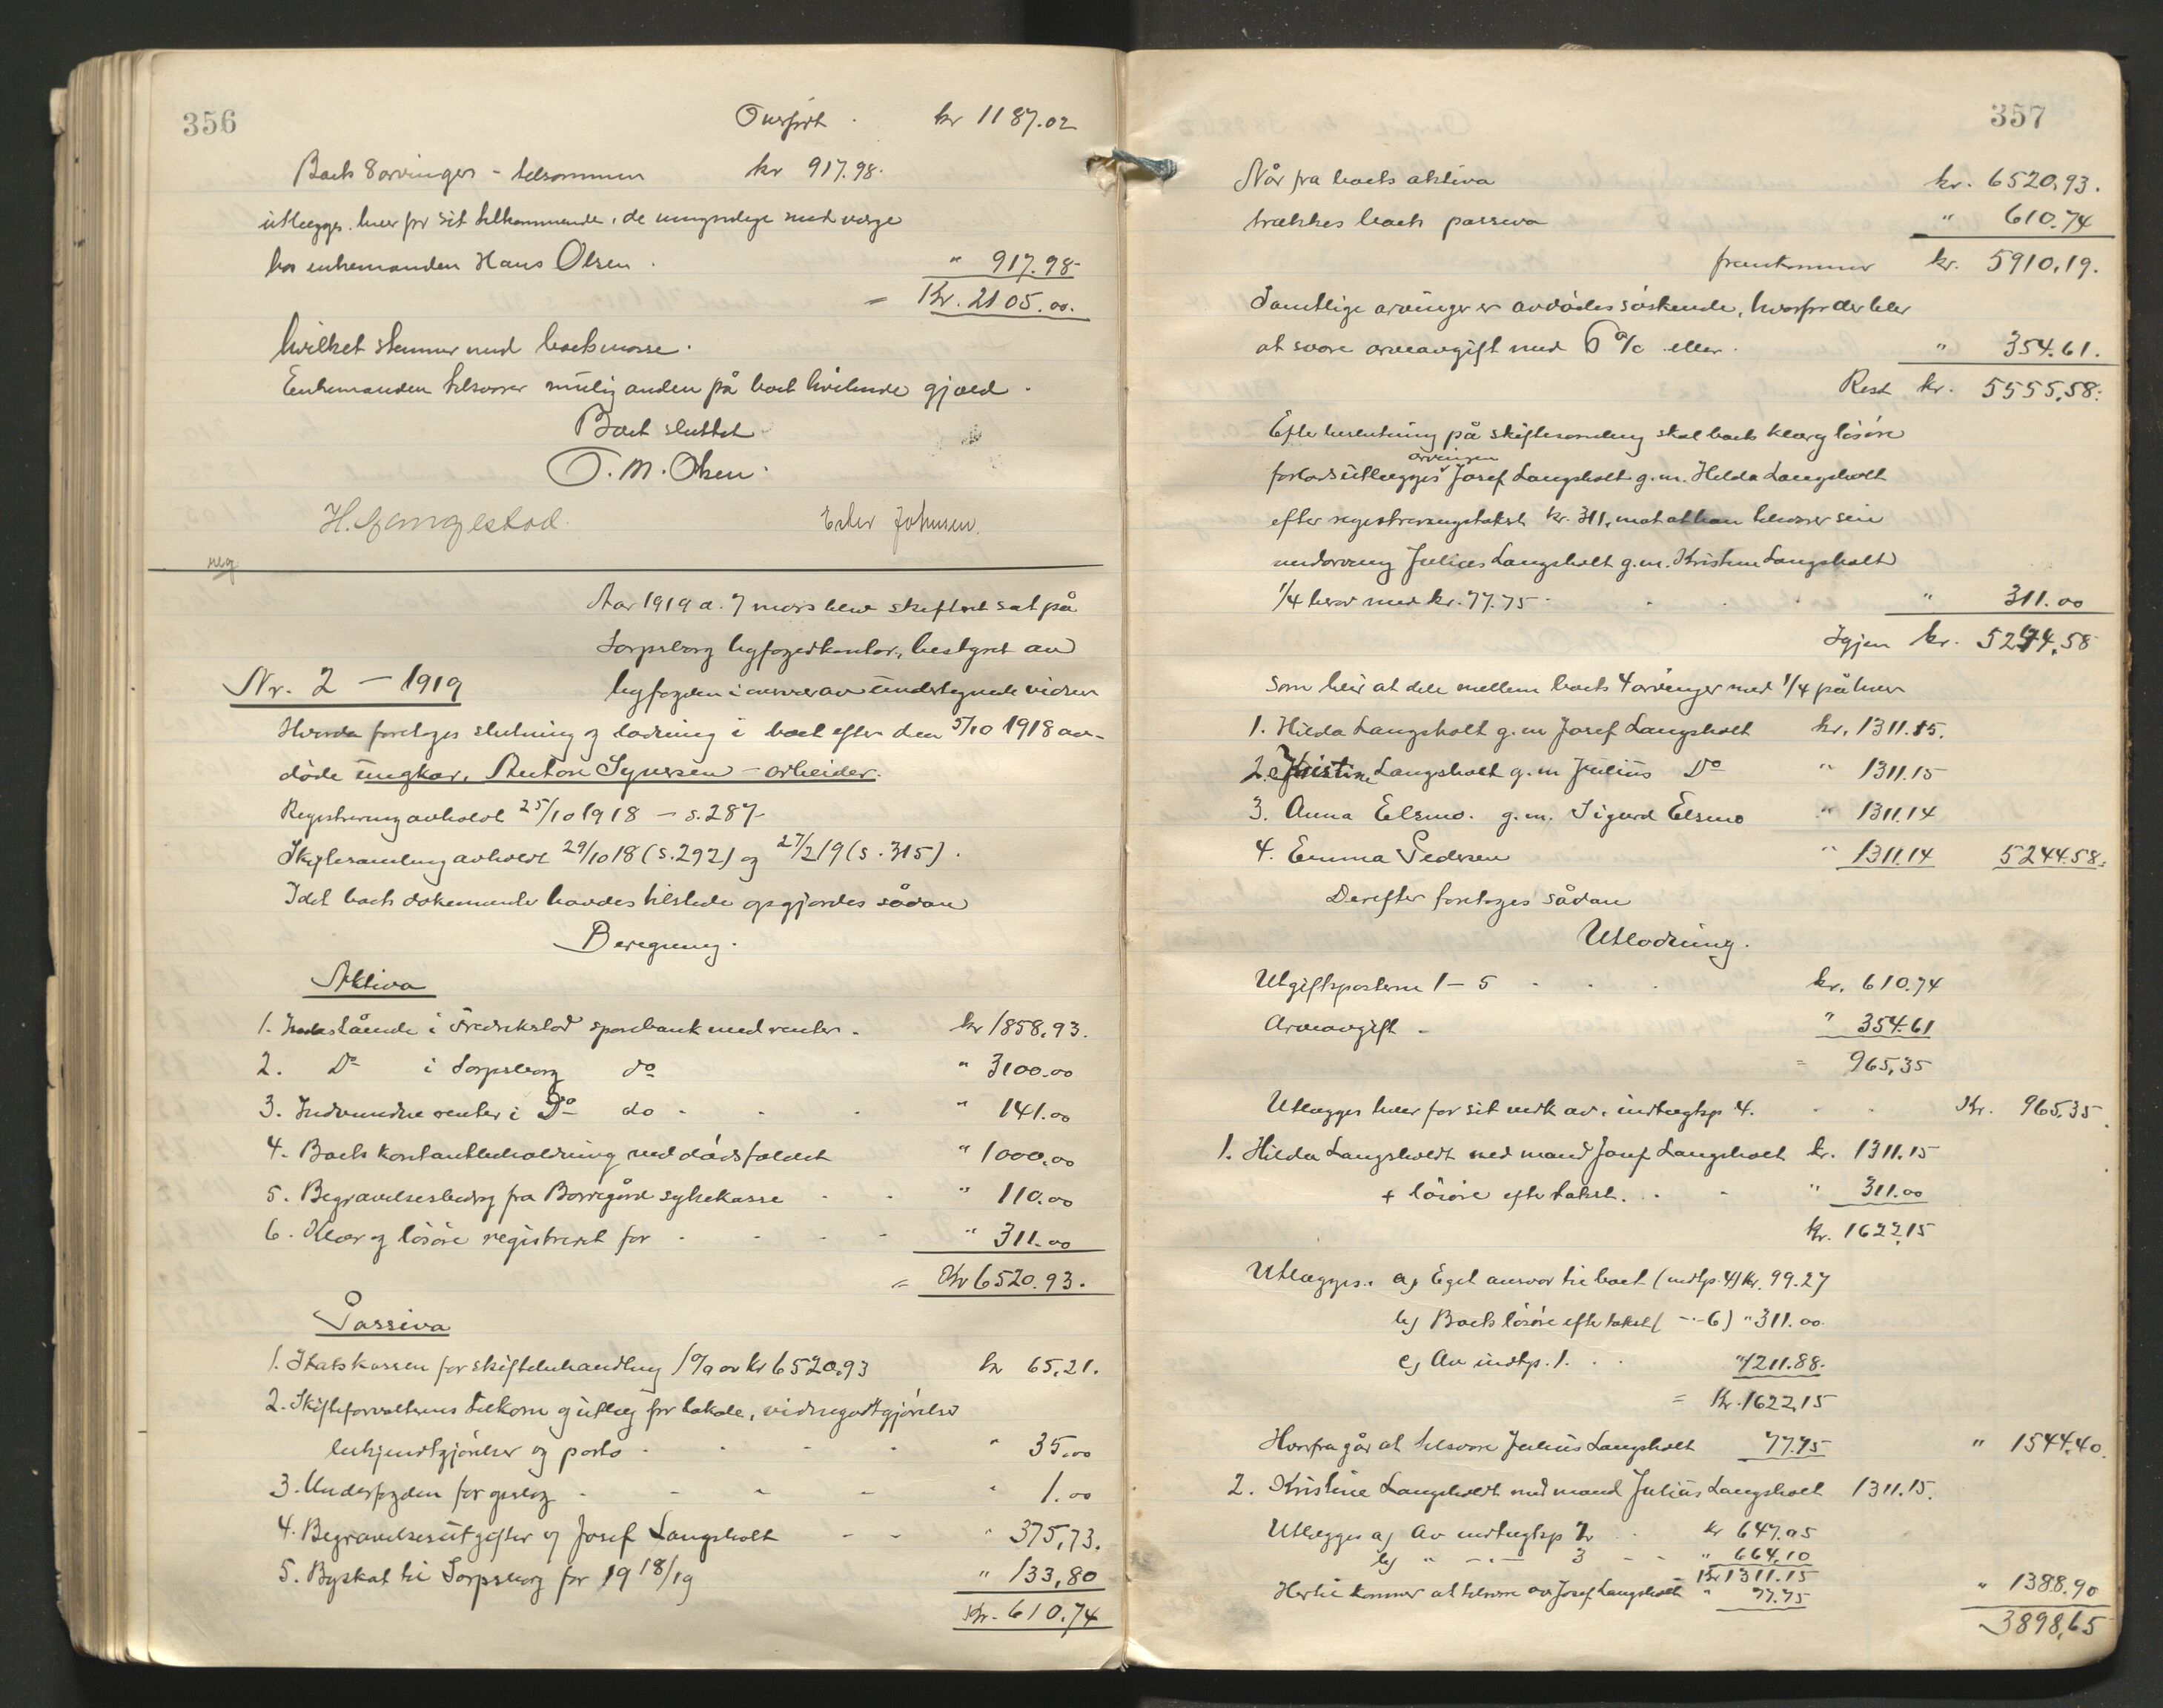 356
Overført . kr 1187.02
Boets 8 arvinger - tilsammen kr 917.98.
utlægges hver for sit tilkommende, de umyndige med værge
hos enkemanden Hans Olsen . " 917.98
= Kr. 2105.00.
hvilket stemmer med boets masse.
Enkemanden tilsvarer mulig anden på boet hvilende gjæld.
Boet sluttet
O. M. Olsen.
H. Johnsen.
neg
Aar 1919 d. 7 mars blev skifteret sat på
Sarpsborg byfogedkontor, bestyret av
Nr. 2 - 1919
byfogden i nærvær av undertegnede vidner
Hvorda foretoges slutning og lodning i boet efter den 5/10 1918 av-
døde ungkar, Anton Syversen - arbeider.
Registrering avholdt 25/10 1918 - s. 287
Skiftesamling avholdt 29/10 18 (s. 292) og 27/2 19 (s. 315).
Idet boets dokumenter havdes tilstede opgjordes sådan
Beregning.
Aktiva
1. Indestående i Fredrikstad sparebank med renter . kr 1858,93.
2. Do i Sarpsborg do " 3100.00
3. Indvundne renter i Do do . " 141.00
4. Boets kontantbeholdning ved dødsfaldet " 1000,00
5. Begravelsesbidrag fra Borregård sykekasse . " 110.00
6. Klær og løsøre registreret for . " 311.00
= Kr 6520.93.
Passiva
1. Statskassen for skiftebehandling 1% av kr 6520.93 kr 65,21.
2. Skifteforvalterens tilkom. og utlæg for lokale, vidnegodtgjørelse
bekjendtgjørelser og porto . " 35.00
3. Underfogden for opslag - " 1.00
4. Begravelsesutgifter v/ Josef Langsholt - " 375,73.
5. Byskat til Sarpsborg for 19 18/19 " 133,80
Kr. 610.74
357
Når fra boets aktiva kr. 6520,93.
trækkes boets passiva " 610.74
fremkommer kr. 5910,19.
Samtlige arvinger er avdødes søskende, hvorfor der blir
at svare arveavgift med 6% eller . " 354.61.
Rest kr. 5555,58.
Efter beslutning på skiftesamling skal boets klær og løsøre
arvingen
forlods utlægges Josef Langsholt g. m. Hilda Langsholt
efter registreringstakst kr. 311, mot at han tilsvarer sin
medarving Julius Langsholt g. m. Kristine Langsholt
1/4 herav med kr. 77.75 . " 311.00
Igjen kr. 5244,58
som blir at dele mellem boets 4 arvinger med 1/4 på hver
1. Hilda Langsholt g. m Josef Langsholt kr. 1311.15.
2. Kristine Langsholt g. m Julius Do " 1311.15
3. Anna Elsmo. g. m. Sigurd Elsmo " 1311.14
4. Emma Pedersen " 1311.14 5244.58.
Derefter foretoges sådan
Utlodning.
Utgiftsposterne 1 - 5 . kr. 610.74
Arveavgift . " 354.61
= 965,35
Utlægges hver for sit vedk. av indtægtsp 4. Kr. 965,35.
1. Hilda Langsholdt med mand Josef Langsholt kr. 1311.15
+ løsøre efter takst . " 311.00
Kr. 1622,15
Utlægges: a, Eget ansvar til boet (indtp. 4) Kr. 99.27
b, Boets løsøre efter takst ( -"- 6) " 311.00.
c, Av indtp. 1. . . " 1211.88.
= Kr. 1622,15
Herfra går at tilsvare Julius Langsholt 77.75 " 1544.40.
2. Kristine Langsholdt med mand Julius Langsholt 1311.15.
Utlægges a, Av indtægtsp 1 . kr 647.05
b, " -"- 3 - " 664,10
Kr 1311.15
Hertil kommer at tilsvare av Josef Langsholt " 77.75 " 1388.90
3898,65